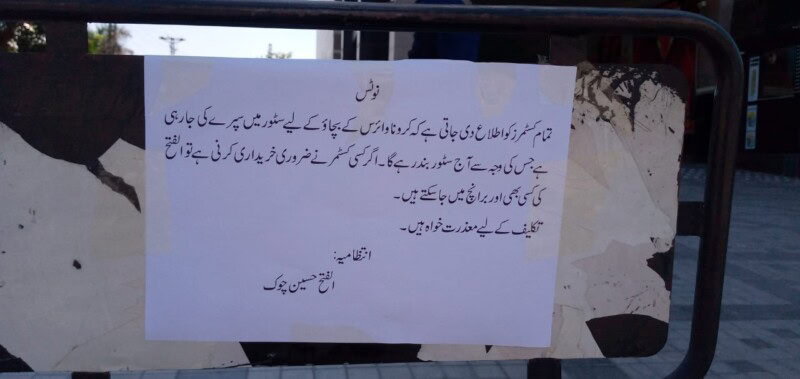 نوٹس
تمام کسٹمرز کو اطلاع دی جاتی ہے کہ کرونا وائرس کے بچاؤ کے لیے سٹور میں سپرے کی جا رہی
ہے جس کی وجہ سے آج سٹور بند رہے گا۔ اگر کسی کسٹمر نے ضروری خریداری کرنی ہے تو الفتح
کی کسی بھی اور برانچ میں جا سکتے ہیں۔
تکلیف کے لیے معذرت خواہ ہیں۔
انتظامیہ:
الفتح حسین چوک